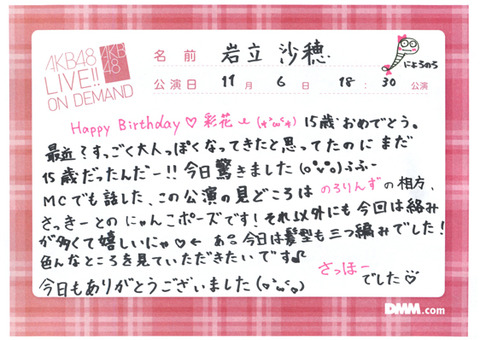 AKB48
LIVE!!
ON DEMAND
AKB
48
名前 岩立 沙穂
にょろのち
公演日 11月 6日 18:30 公演
Happy Birthday♡彩花 15歳おめでとう。
最近?すっごく大人っぽくなってきたと思ってたのにまだ
15歳だったんだー!!今日驚きました(o°v°o)ふふー
MCでも話した、この公演の見どころはのろりんずの相方、
さっきーとのにゃんこポーズです!それ以外にも今回は絡み
が多くて嬉しいにゃ♡← あ、今日は髪型も三つ編みでした!
色んなところを見ていただきたいです♪
さっほー
今日もありがとうございました でした♡
DMM.com